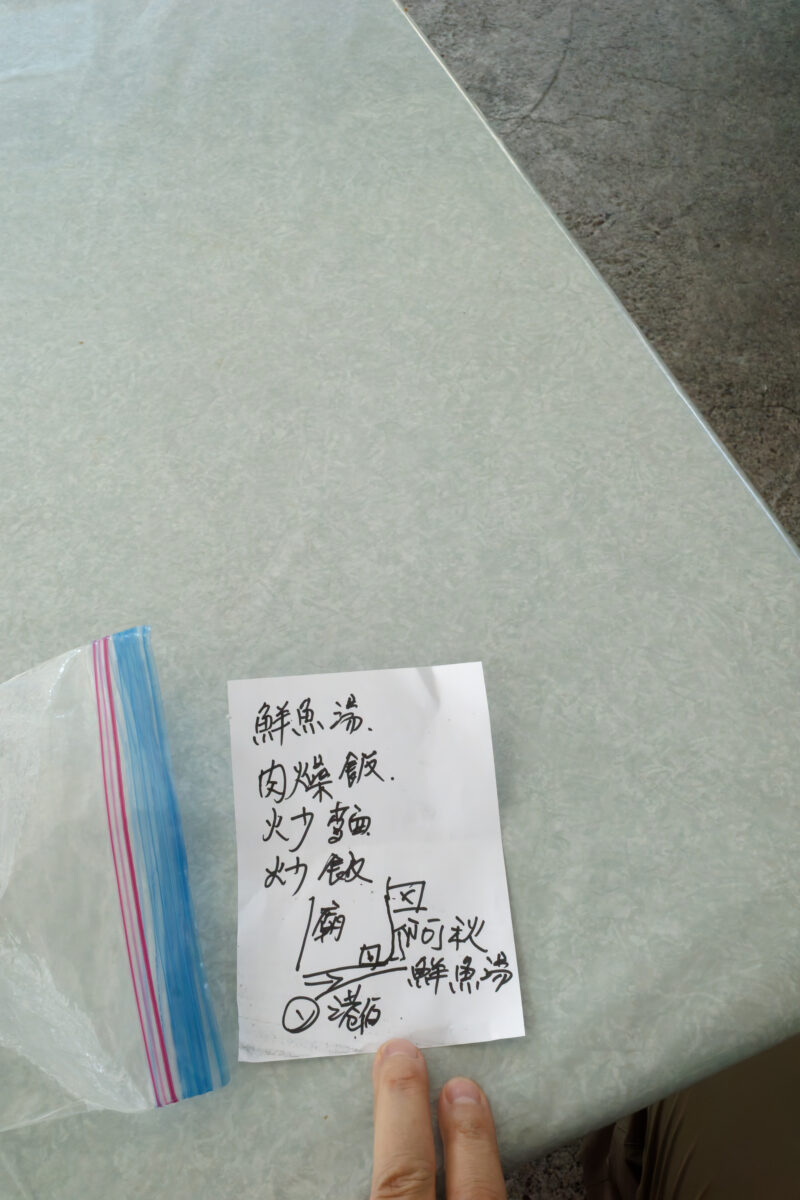 鮮魚湯.
肉燥飯.
炒麵
炒飯
廟
阿秋
鮮魚湯
港